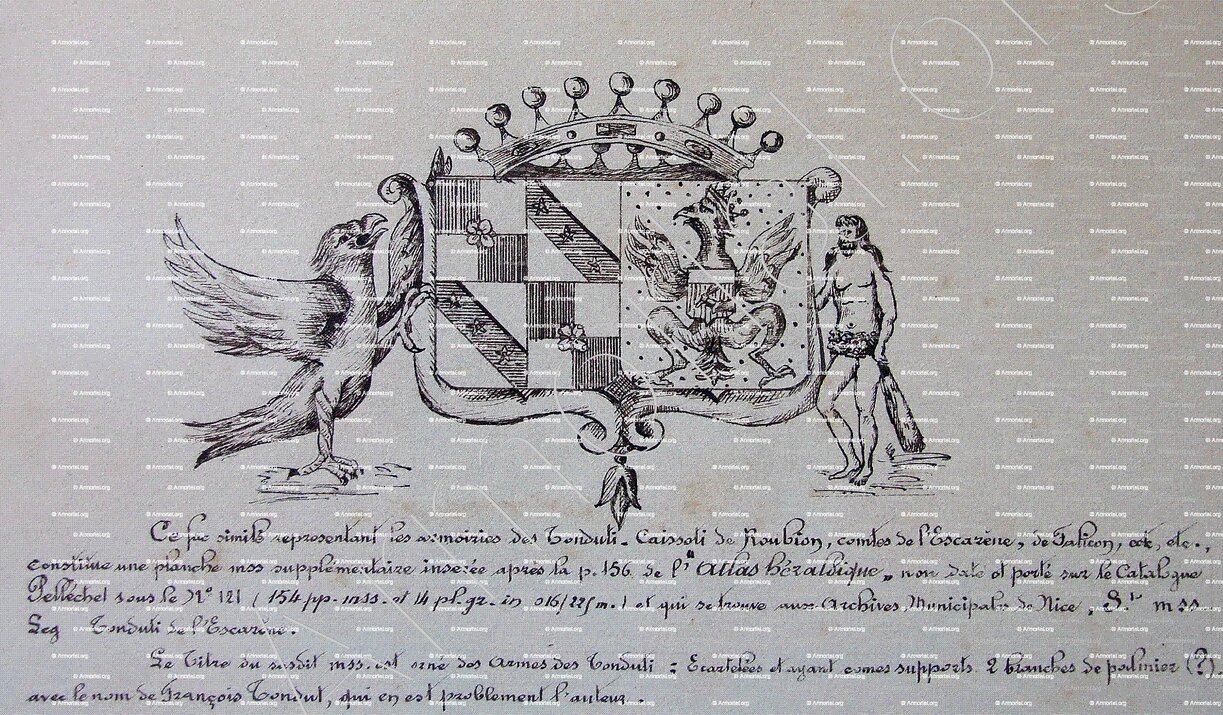 Ce fac similé représentant les armoiries des Tonduti - Caissoti de Roubion, comtes de l'Escarène, de Falicon, etc, etc.,
constitue une planche mss supplémentaire insérée après la p. 156. de l' "Atlas héraldique" non daté et porté sur le Catalogue
Pellechet sous le No 121 (154 pp. mss. et 14 pl. gr. in 016/22f m.) et qui se trouve aux Archives Municipales de Nice, mss
Leg Tonduti de l'Escarène.
Le Titre du susdit mss. est orné des Armes des Tonduti : Ecartelées et ayant comes supports 2 branches de palmier (?)
avec le nom de François Tondut, qui en est problement l'auteur.
© Armorial.org